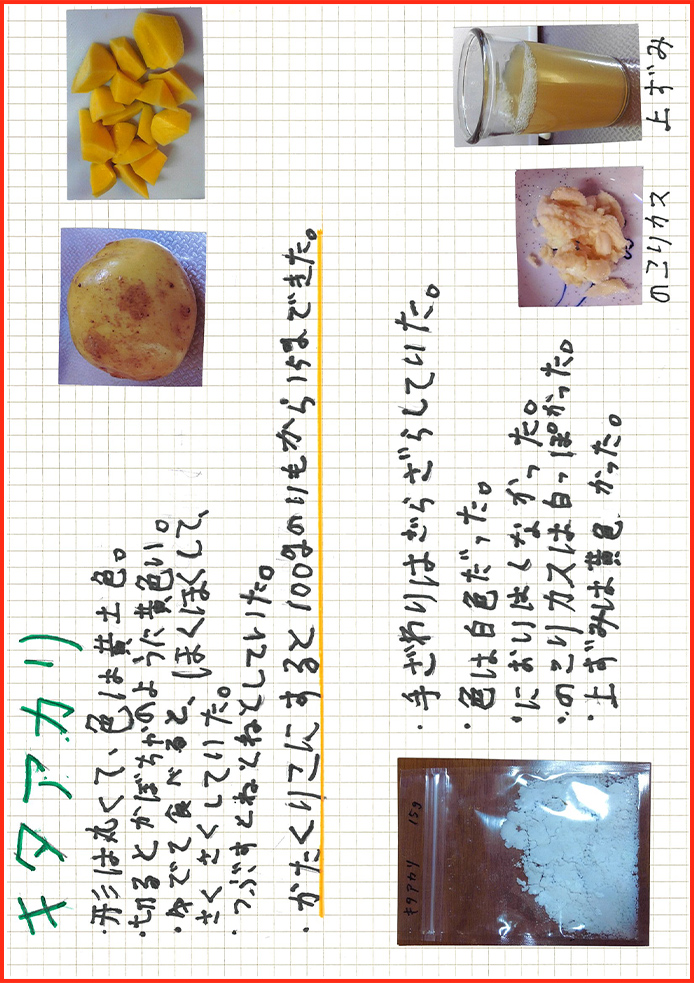 キタアカリ
・形は丸くて、色は黄土色。
・切るとかぼちゃのような黄色い。
・ゆでて食べると、ほくほくして、
さくさくしていた。
・つぶすとねとねとしていた。
・かたくりこにすると100gのいもから15gできた。
・手ざわりはざらざらしていた。
・色は白色だった。
・においはしなかった。
・のこりカスは白っぽかった。
・上ずみは黄色かった。
のこりカス
上ずみ
キタアカリ 15g